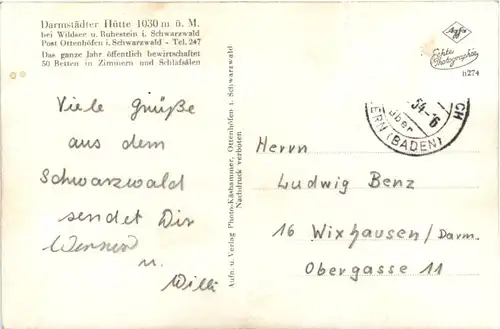 Darmstädter Hütte 1030 m ü. M.
bei Wildsee u. Ruhestein i. Schwarzwald
Post Ottenhöfen i. Schwarzwald - Tel. 247
Das ganze Jahr öffentlich bewirtschaftet
50 Betten in Zimmern und Schlafsälen
Viele Grüße
aus dem
Schwarzwald
sendet Dir
Werner
u. Willi
Aufn. u. Verlag Photo-Käshammer, Ottenhöfen i. Schwarzwald
Nachdruck verboten
Agfa
Echte
Photographie
h274
54-6
über
CH
ERN (BADEN)
Herrn
Ludwig Benz
16 Wixhausen/Darm.
Obergasse 11